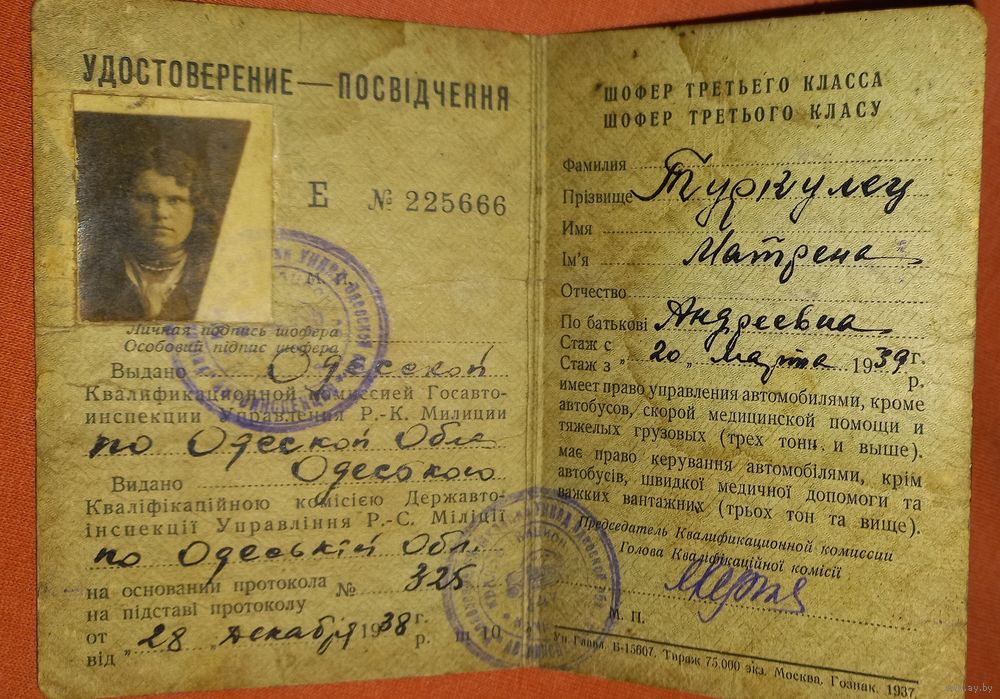 УДОСТОВЕРЕНИЕ — ПОСВІДЧЕННЯ
Е № 225666
М. П.
Личная подпись шофера
Особовий підпис шофера
Выдано Одесской
Квалификационной комиссией Госавто-
инспекции Управления Р.-К. Милиции
по Одеской Обл.
Видано Одеського
Кваліфікаційною комісією Державто-
інспекції Управління Р.-С. Міліції
по Одеській Обл.
на основании протокола № 325
на підставі протоколу
от „28 декабря 1938 г.
від р.
ШОФЕР ТРЕТЬЕГО КЛАССА
ШОФЕР ТРЕТЬОГО КЛАСУ
Фамилия
Прізвище Туркулец
Имя
Ім'я Матрена
Отчество
По батькові Андреевна
Стаж с
Стаж з „20„ марта 1939 г.
р.
имеет право управления автомобилями, кроме
автобусов, скорой медицинской помощи и
тяжелых грузовых (трех тонн и выше).
має право керування автомобілями, крім
автобусів, швидкої медичної допомоги та
важких вантажних (трьох тон та вище).
Председатель Квалификационной комиссии
Голова Кваліфікаційної комісії
М. П.
Уп. Главл. Б-15607. Тираж 75.000 экз. Москва. Гознак. 1937.
ay.by